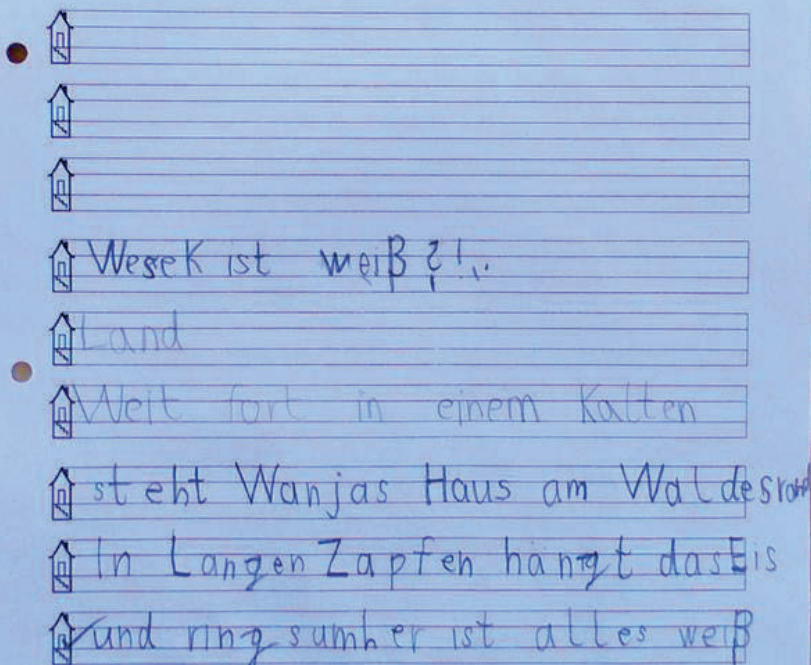 Wesek ist weiß?!..
Land
Weit fort in einem Kalten
steht Wanjas Haus am Waldesrand
In Langen Zapfen hängt das Eis
und ringsumher ist alles weiß